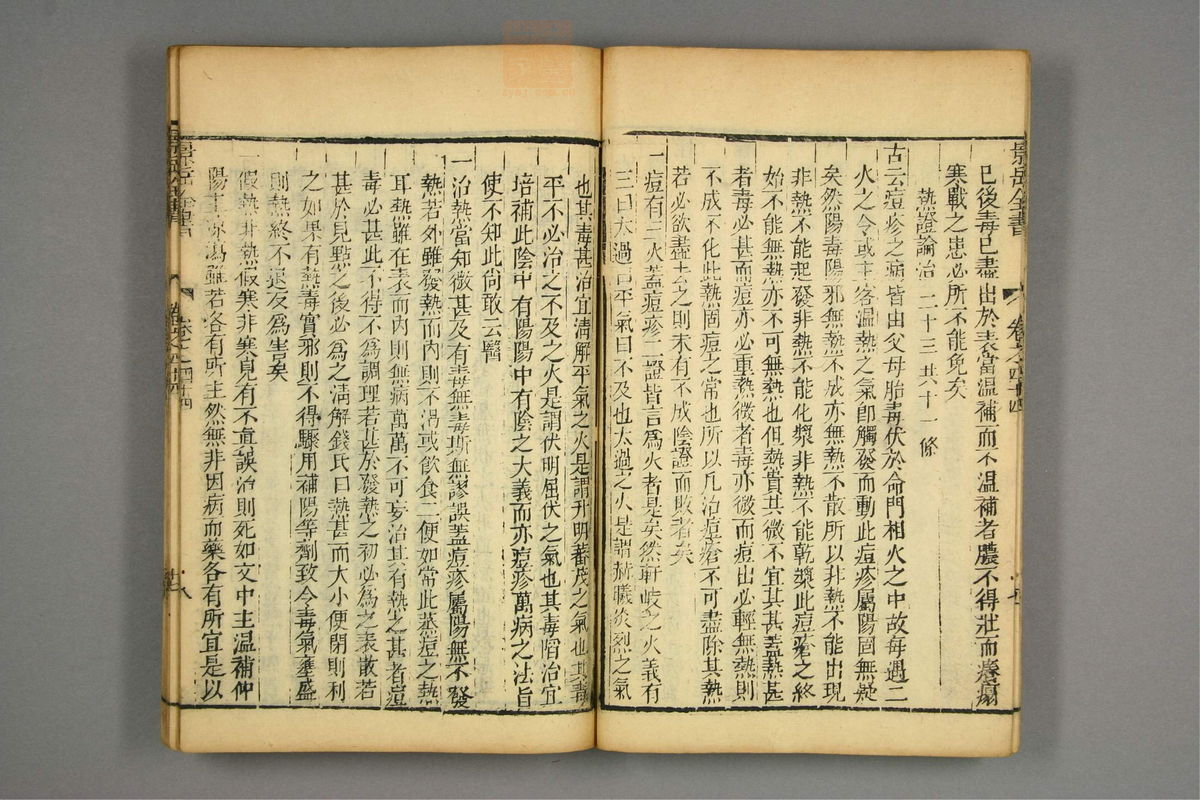 景岳全書
卷之四十四
已後毒已盡出於表當温補而不温補者膿不得壯而癢塌
寒戰之患必所不能免矣
熱證論治 二十三 共十一條
古云痘疹之病皆由父母胎毒伏於命門相火之中故每遇二
火之令或主客温熱之氣卽觸發而動此痘疹屬陽固無疑
矣然陽毒陽邪無熱不成亦無熱不散所以非熱不能出現
非熱不能起發非熱不能化漿非熱不能乾漿此痘瘡之終
始不能無熱亦不可無熱也但熱貴其微不宜其甚蓋熱甚
者毒必甚而痘亦必重熱微者毒亦微而痘出必輕無熱則
不成不化此熱固痘之常也所以凡治痘瘡不可盡除其熱
若必欲盡去之則未有不成陰證而敗者矣
一痘有三火蓋痘疹二證皆言為火者是矣然軒岐之火義有
三曰太過曰平氣曰不及也太過之火是謂赫曦炎烈之氣
也其毒甚治宜清解平氣之火是謂升明蕃茂之氣也其毒
平不必治之不及之火是謂伏明屈伏之氣也其毒陷治宜
培補此陰中有陽陽中有陰之大義而亦痘疹萬病之法旨
使不知此尚敢云醫
一治熱當知微甚及有毒無毒斯無謬誤蓋痘疹屬陽無不發
熱若外雖發熱而內則不渴或飲食二便如常此蒸痘之熱
耳熱雖在表而內則無病萬萬不可妄治其有熱之甚者痘
毒必甚此不得不為調理若甚於發熱之初必為之表散若
甚於見點之後必為之清解錢氏曰熱甚而大小便閉則利
之如果有熱毒實邪則不得驟用補陽等劑致令毒氣壅盛
則熱終不退反為害矣
一假熱非熱假寒非寒見有不眞誤治則死如文中主温補仲
陽主涼瀉雖若各有所主然無非因病而藥各有所宜是以
景岳全書
卷之四十四